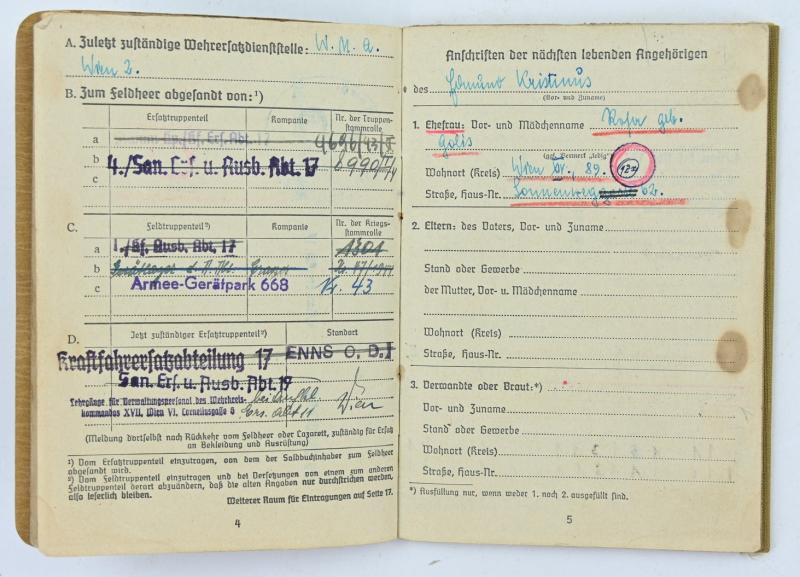 A. Zuletzt zuständige Wehrersatzdienststelle: W. M. A.
Wien 2.
B. Zum Feldheer abgesandt von:¹)
Ersatztruppenteil Kompanie Nr. der Truppen-
stammrolle
a Ers. Abt. 17 4696/43/
b 4./San. Ers. u. Ausb. Abt. 17 6990/
c
C. Feldtruppenteil²) Kompanie Nr. der Kriegs-
stammrolle
a 1./Kf. Ausb. Abt. 17 1301
b
c Armee-Gerätpark 668 Nr. 43
D. Jetzt zuständiger Ersatztruppenteil²) Standort
Kraftfahrersatzabteilung 17 ENNS O. D.
San. Ers. u. Ausb. Abt. 17
Lehrgänge für Verwaltungspersonal des Wehrkreis-
kommandos XVII, Wien VI, Corneliusgasse 6 Ers. Abt 17 Wien
(Meldung dortselbst nach Rückkehr vom Feldheer oder Lazarett, zuständig für Ersatz
an Bekleidung und Ausrüstung)
¹) Vom Ersatztruppenteil einzutragen, von dem der Soldbuchinhaber zum Feldheer
abgesandt wird.
²) Vom Feldtruppenteil einzutragen und bei Versetzungen von einem zum anderen
Feldtruppenteil derart abzuändern, daß die alten Angaben nur durchstrichen werden,
also leserlich bleiben.
Weiterer Raum für Eintragungen auf Seite 17.
4
Anschriften der nächsten lebenden Angehörigen
des Edmund Kristinus
(Vor- und Zuname)
1. Ehefrau: Vor- und Mädchenname Rosa geb.
Golis
(ggf. Vermerk „ledig")
Wohnort (Kreis) Wien 89.
Straße, Haus-Nr. Sonnenweg 62.
2. Eltern: des Vaters, Vor- und Zuname
Stand oder Gewerbe
der Mutter, Vor- u. Mädchenname
Wohnort (Kreis)
Straße, Haus-Nr.
3. Verwandte oder Braut:*)
Vor- und Zuname
Stand oder Gewerbe
Wohnort (Kreis)
Straße, Haus-Nr.
*) Ausfüllung nur, wenn weder 1. noch 2. ausgefüllt sind.
5